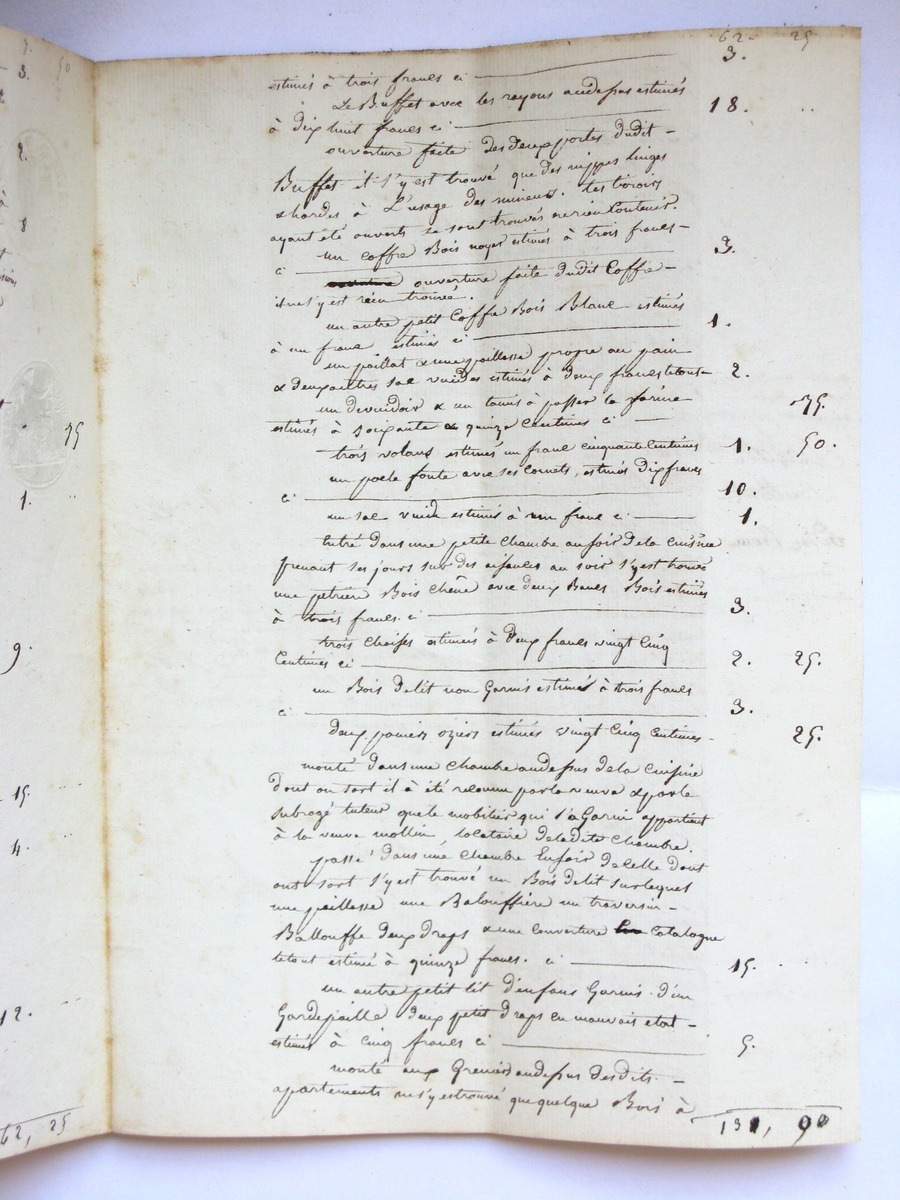 62. 25
estimés à trois francs ci 3.
Le Buffet avec les rayons audessus estimés
à dix huit francs ci 18. ..
ouverture faite des deux portes dudit
Buffet il s'y est trouvé que des nippes linges
& hardes à L'usage des mineurs. Les tiroirs
ayant été ouverts se sont trouvés ne rien Contenir.
un coffre Bois noyer estimés à trois francs
ci 3.
ouverture faite dudit Coffre
il ne s'y est rien trouvé.
un autre petit Coffre Bois Blanc estimés
à un franc estimés ci 1.
un paillat & une paillasse propre au pain
& deux autres sac vuides estimés à deux francs letout 2.
un devuidoir & un tamis à passer la farine
estimés à soixante & quinze Centimes ci 75.
trois volans estimés un franc cinquante Centimes 1. 50.
un poele fonte avec ses Cornets, estimés dix francs
ci 10.
un sac vuide estimés à un franc ci 1.
Entré dans une petite chambre au soir de la cuisine
prenant ses jours sur des aisances au soir s'y est trouvé
une petriere Bois chêne avec deux Bancs Bois estimés
à trois francs. ci 3.
trois chaises estimés à deux francs vingt Cinq
Centimes ci 2. 25.
un Bois de lit non Garnis estimés à trois francs
ci 3.
deux paniers oziers estimés vingt Cinq Centimes 25.
monté dans une chambre audessus de la Cuisine
dont on sort il à été reconnu par la veuve & par le
subrogé tuteur que le mobilier qui l'a Garni appartient
à la veuve mollin, locataire de la dite chambre.
passé dans une chambre Enfoir de Celle dont
ont sort s'y est trouvé un Bois de lit sur lequel
une paillasse une Balouffière un traversin
Ballouffe deux draps & une Couverture Catalogne
le tout estimé à quinze francs. ci 15.
un autre petit lit d'enfans Garnis d'un
Gardepaille deux petit draps en mauvais etat
estimés à Cinq francs ci 5.
monté aux Greniers audessus desdits
apartements ne s'y est trouvé que quelque Bois à
131, 90
7.
3. 50
2.
8
75
1.
9.
15.
4.
12.
62, 25